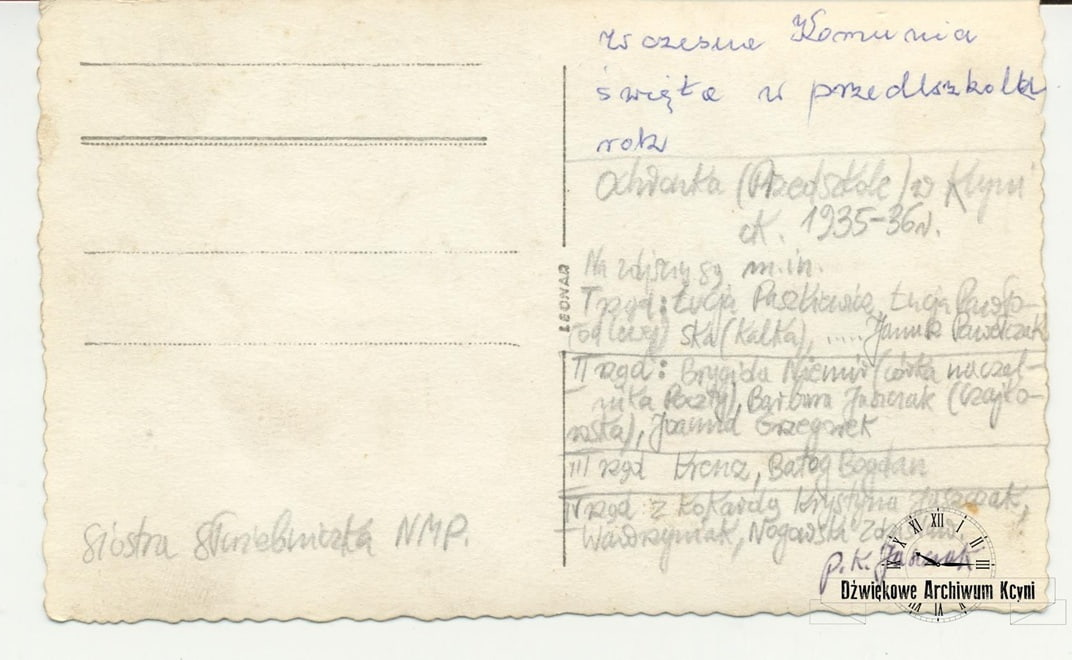 Wczesna Komunia
święta w przedszkolu
rok
Ochronka (Przedszkole) w Kcyni
ok. 1935-36r.
Na zdjęciu są m.in.
I rząd: Łucja Paszkiewicz, Łucja Pawło-
(od lewej) ska (Kalka), .... Janusz Pawełczak
II rząd: Brygida Niemir (córka naczel-
nika Poczty), Barbara Jaszczak (Czajko-
wska), Joanna Grzegorek
III rząd Krenz, Batog Bogdan
IV rząd z kokardą Krystyna Jaszczak,
Wawrzyniak, Nogowska
p. K. Jaszczak
Siostra Służebniczka NMP.
LEONAR
XII I II III VI IX X XI
Dźwiękowe Archiwum Kcyni